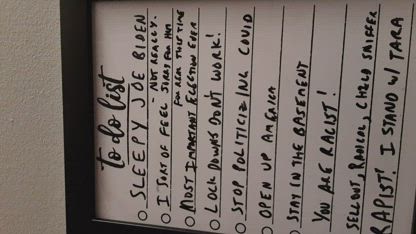 to do list
SLEEPY JOE BIDEN
- NOT REALLY.
I SORT OF FEEL SORRY FOR HIM
FOR REAL THIS TIME
MOST IMPORTANT ELECTION EVER
LOCK DOWNS DON'T WORK!
STOP POLITICIZING COVID
OPEN UP AMERICA
STAY IN THE BASEMENT
YOU ARE RACIST!
SELLOUT, RADICAL, CHILD SNIFFER
RAPIST! I STAND W/ TARA